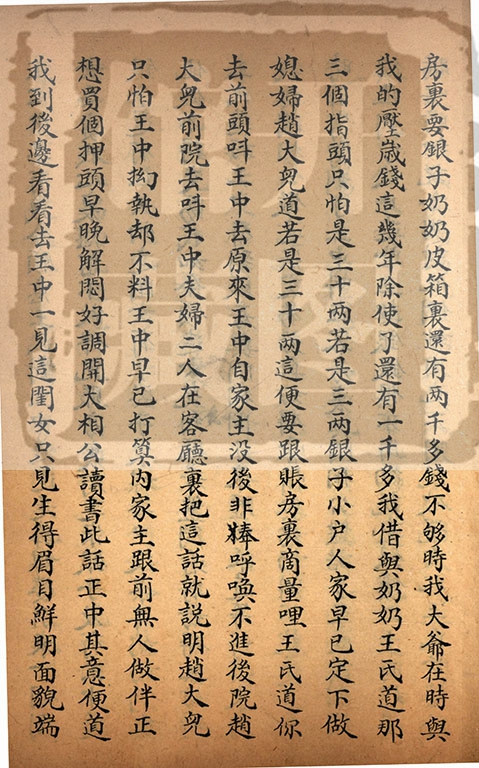 房裏要銀子奶奶皮箱裏還有两千多錢不够時我大爺在時與
我的壓歳錢這幾年除使了還有一千多我借與奶奶王氏道那
三個指頭只怕是三十两若是三两銀子小户人家早已定下做
媳婦趙大兒道若是三十两這便要跟賬房裏商量哩王氏道你
去前頭呌王中去原來王中自家主没後非𢱢呼唤不進後院趙
大兒前院去呌王中夫婦二人在客廳裏把這話就説明趙大兒
只怕王中拗執却不料王中早已打筭内家主跟前無人做伴正
想買個押頭早晚解悶好調開大相公讀書此話正中其意便道
我到後邊看看去王中一見這閨女只見生得眉目鮮明面貌端